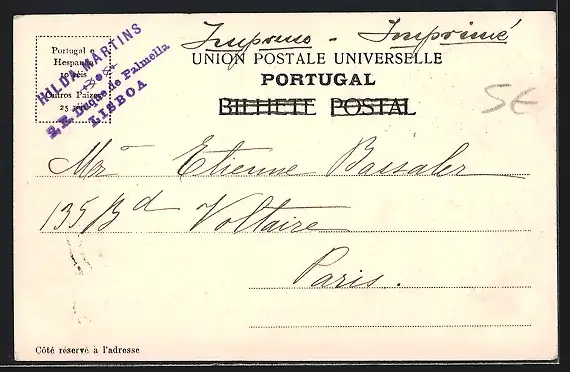 Impresso - Imprimé
UNION POSTALE UNIVERSELLE
PORTUGAL
BILHETE POSTAL
Portugal e
Hespanha
10 réis
Outros Paizes
25 réis
HILDA MARTINS
2, R. Duque de Palmella
LISBOA
5€
Mr Etienne Bassaler
135 Bd Voltaire
Paris.
Côté réservé à l'adresse